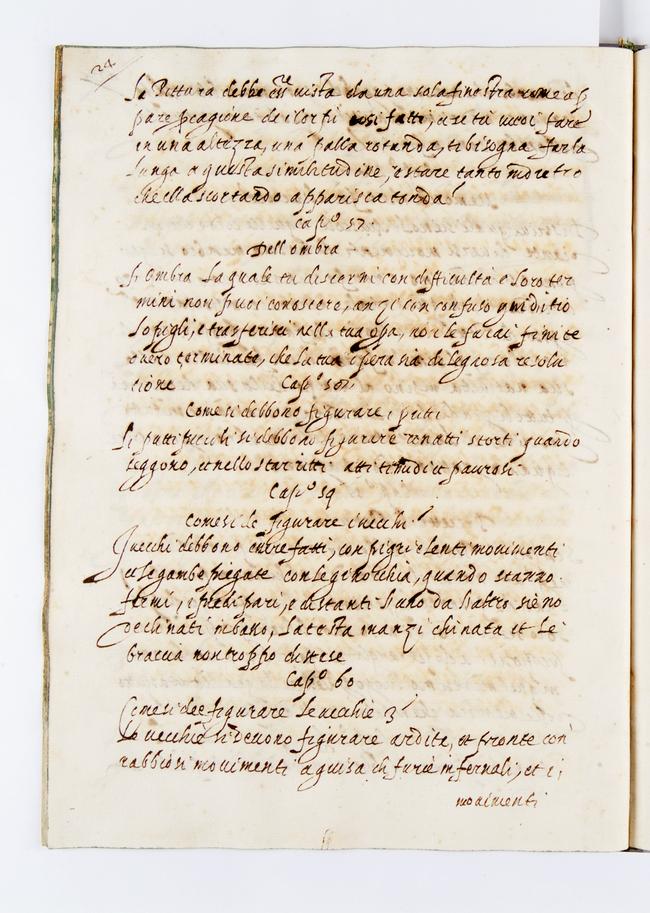 24
La Pittura debbe ess.re vista da una sola finestra come ap
pare p cagione de i Corpi così fatti, e se tu vuoi fare
in una altezza, una palla rotonda, ti bisogna farla
lunga a guisa similitudine, e stare tanto indietro
che ella scortando apparisca tonda
Cap.º 57.
Dell ombra
L'Ombra la quale tu discerni con difficultà e loro ter
mini non puoi conoscere, anzi con confuso giuditio
lo pigli, e trasferisci nella tua opa, non le farai finite
overo terminate, che la tua opera sia di legnosa resolu
tione Cap.º 58.
Come si debbono figurare i putti
Li putti piccoli si debbono figurare con atti storti quando
seggono, et nello star ritti atti timidi et paurosi
Cap.º 59
Come si de figurare i vecchi
I vecchi debbono essere fatti, con pigri e lenti movimenti
et le gambe piegate con le ginocchia, quando stanno
fermi, i piedi pari, e distanti l'uno da l'altro sieno
declinati in basso, la testa inanzi chinata et le
braccia non troppo distese
Cap.º 60
Come si dee figurare le vecchie
Le vecchie si devono figurare ardite, et pronte con
rabbiosi movimenti a guisa di furie infernali, et i
movimenti